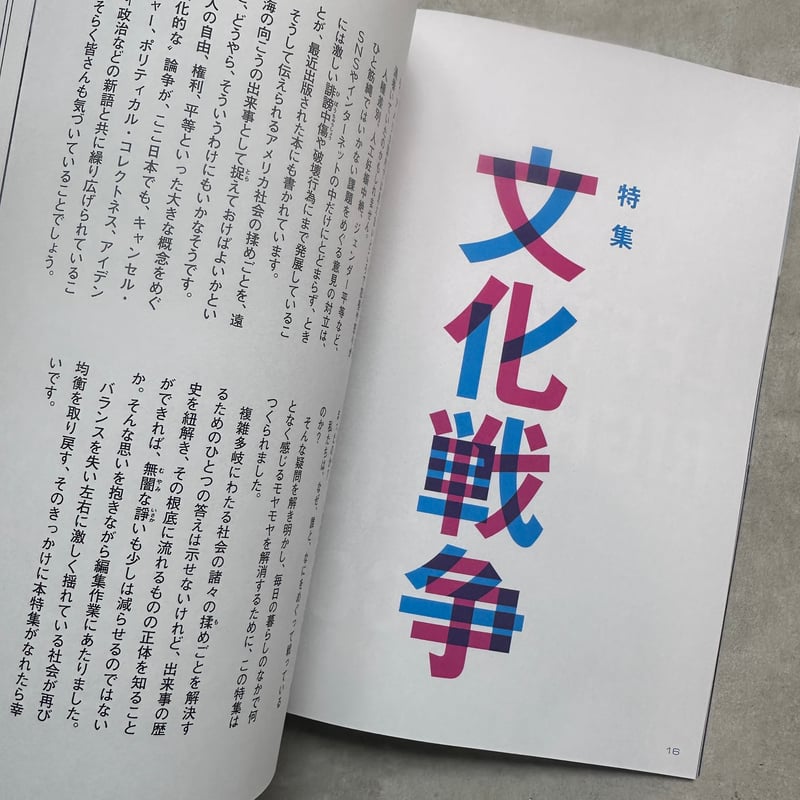 特集
文化戦争
16
ひと筋縄ではいかない課題をめぐる意見の対立は、
SNSやインターネットの中だけにとどまらず、とき
には激しい誹謗中傷や破壊行為にまで発展しているこ
とが、最近出版された本にも書かれています。
そうして伝えられるアメリカ社会の揉めごとを、遠
海の向こうの出来事として捉えておけばよいかとい
、どうやら、そういうわけにもいかなそうです。
人の自由、権利、平等といった大きな概念をめぐ
化的な〟論争が、ここ日本でも、キャンセル・
ャー、ポリティカル・コレクトネス、アイデン
ィ政治などの新語と共に繰り広げられているこ
そらく皆さんも気づいていることでしょう。
私たちは、なぜ、誰と、なにをめぐって戦っている
のか?
そんな疑問を解き明かし、毎日の暮らしのなかで何
となく感じるモヤモヤを解消するために、この特集は
つくられました。
複雑多岐にわたる社会の諸々の揉めごとを解決す
るためのひとつの答えは示せないけれど、出来事の歴
史を紐解き、その根底に流れるものの正体を知ること
ができれば、無闇な諍いも少しは減らせるのではない
か。そんな思いを抱きながら編集作業にあたりました。
バランスを失い左右に激しく揺れている社会が再び
均衡を取り戻す、そのきっかけに本特集がなれたら幸
いです。